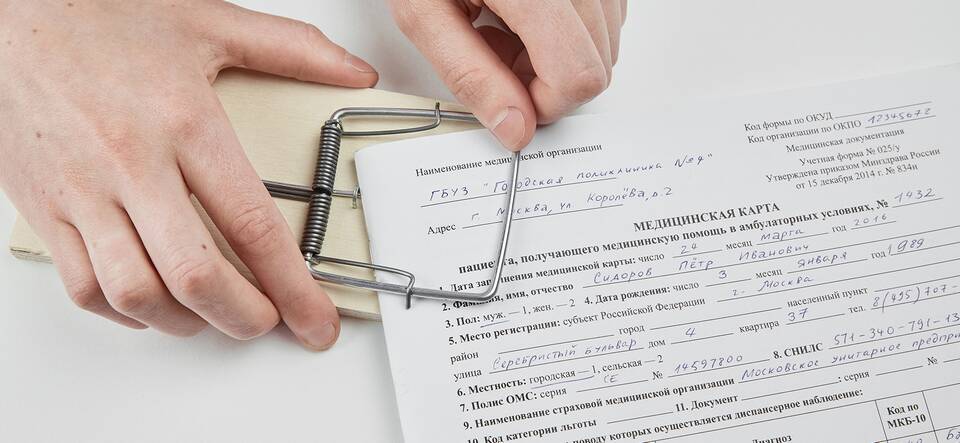 Код формы по ОКУД
Код организации по ОКПО 12345672
Медицинская документация
Учетная форма № 025/у
Утверждена приказом Минздрава России
от 15 декабря 2014 г. № 834н
Наименование медицинской организации
ГБУЗ "Городская поликлиника №4"
Адрес г. Москва, ул. Королёва, д. 2
МЕДИЦИНСКАЯ КАРТА
пациента, получающего медицинскую помощь в амбулаторных условиях, № 1432
1. Дата заполнения медицинской карты: число 24 месяц марта год 2016
2. Фамилия, имя, отчество Сидоров Пётр Иванович
3. Пол: муж. — 1, жен. — 2 4. Дата рождения: число 3 месяц января год 1989
5. Место регистрации: субъект Российской Федерации г. Москва
район город населенный пункт
улица Серебристый бульвар дом 4 квартира 37 тел. 8(495)707-
6. Местность: городская — 1, сельская — 2
7. Полис ОМС: серия СЕ № 14597800 8. СНИЛС 571-340-791-13
9. Наименование страховой медицинской организации Московское унитарное предпри
10. Код категории льготы 11. Документ : серия №
поводу которых осуществляется диспансерное наблюдение:
Диагноз
Код по
МКБ-10